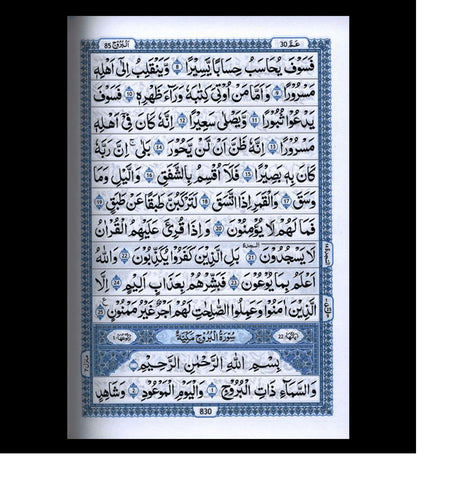 البروج 85
عم 30
فَسَوْفَ يُحَاسَبُ حِسَابًا يَّسِيْرًا ۙ 8 وَّيَنْقَلِبُ اِلٰٓى اَهْلِهٖ
مَسْرُوْرًا ؕ 9 وَاَمَّا مَنْ اُوْتِىَ كِتٰبَهٗ وَرَآءَ ظَهْرِهٖ ۙ 10 فَسَوْفَ
يَدْعُوْا ثُبُوْرًا ۙ 11 وَّيَصْلٰى سَعِيْرًا ؕ 12 اِنَّهٗ كَانَ فِىْٓ اَهْلِهٖ
مَسْرُوْرًا ؕ 13 اِنَّهٗ ظَنَّ اَنْ لَّنْ يَّحُوْرَ ۛۚ 14 بَلٰٓى ۛۚ اِنَّ رَبَّهٗ
كَانَ بِهٖ بَصِيْرًا ؕ 15 فَلَآ اُقْسِمُ بِالشَّفَقِ ۙ 16 وَالَّيْلِ وَمَا
وَسَقَ ۙ 17 وَالْقَمَرِ اِذَا اتَّسَقَ ۙ 18 لَتَرْكَبُنَّ طَبَقًا عَنْ طَبَقٍ ؕ 19
فَمَا لَهُمْ لَا يُؤْمِنُوْنَ ۙ 20 وَاِذَا قُرِئَ عَلَيْهِمُ الْقُرْاٰنُ
لَا يَسْجُدُوْنَ ؕ السجدة 21 بَلِ الَّذِيْنَ كَفَرُوْا يُكَذِّبُوْنَ ۖ 22 وَاللّٰهُ
اَعْلَمُ بِمَا يُوْعُوْنَ ۖ 23 فَبَشِّرْهُمْ بِعَذَابٍ اَلِيْمٍ ۙ 24 اِلَّا
الَّذِيْنَ اٰمَنُوْا وَعَمِلُوا الصّٰلِحٰتِ لَهُمْ اَجْرٌ غَيْرُ مَمْنُوْنٍ 25
اٰيَاتُهَا 22 سُوْرَةُ الْبُرُوْجِ مَكِّيَّةٌ رُكُوْعُهَا 1
بِسْمِ اللّٰهِ الرَّحْمٰنِ الرَّحِيْمِ
وَالسَّمَآءِ ذَاتِ الْبُرُوْجِ ۙ 1 وَالْيَوْمِ الْمَوْعُوْدِ ۙ 2 وَشَاهِدٍ
830